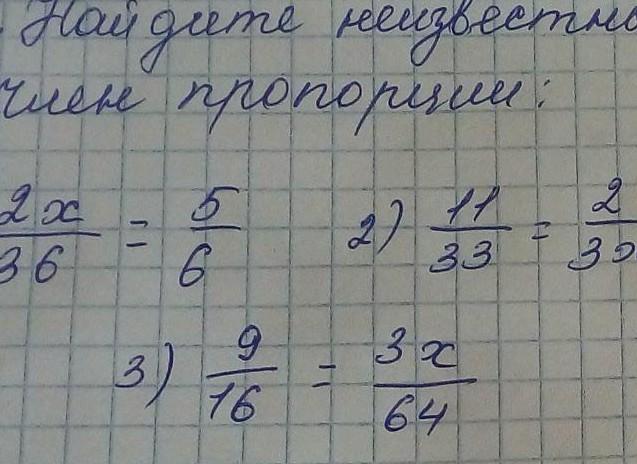 Найдите неизвестн
член пропорции:
2x/36 = 5/6 2) 11/33 = 2/3
3) 9/16 = 3x/64